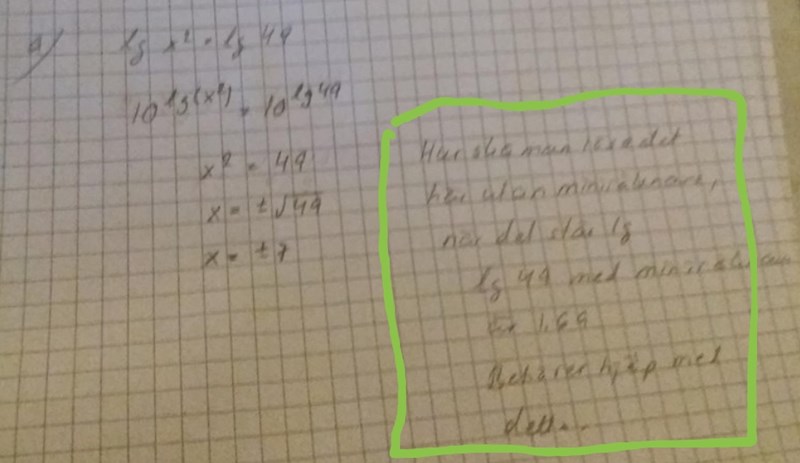 a)
lg x² = lg 49
10^lg(x²) = 10^lg49
x² = 49
x = ±√49
x = ±7
Hur ska man lösa det
här utan miniräknare,
när det står lg
lg 49 med miniräknaren
är 1,69
Behöver hjälp med
detta..